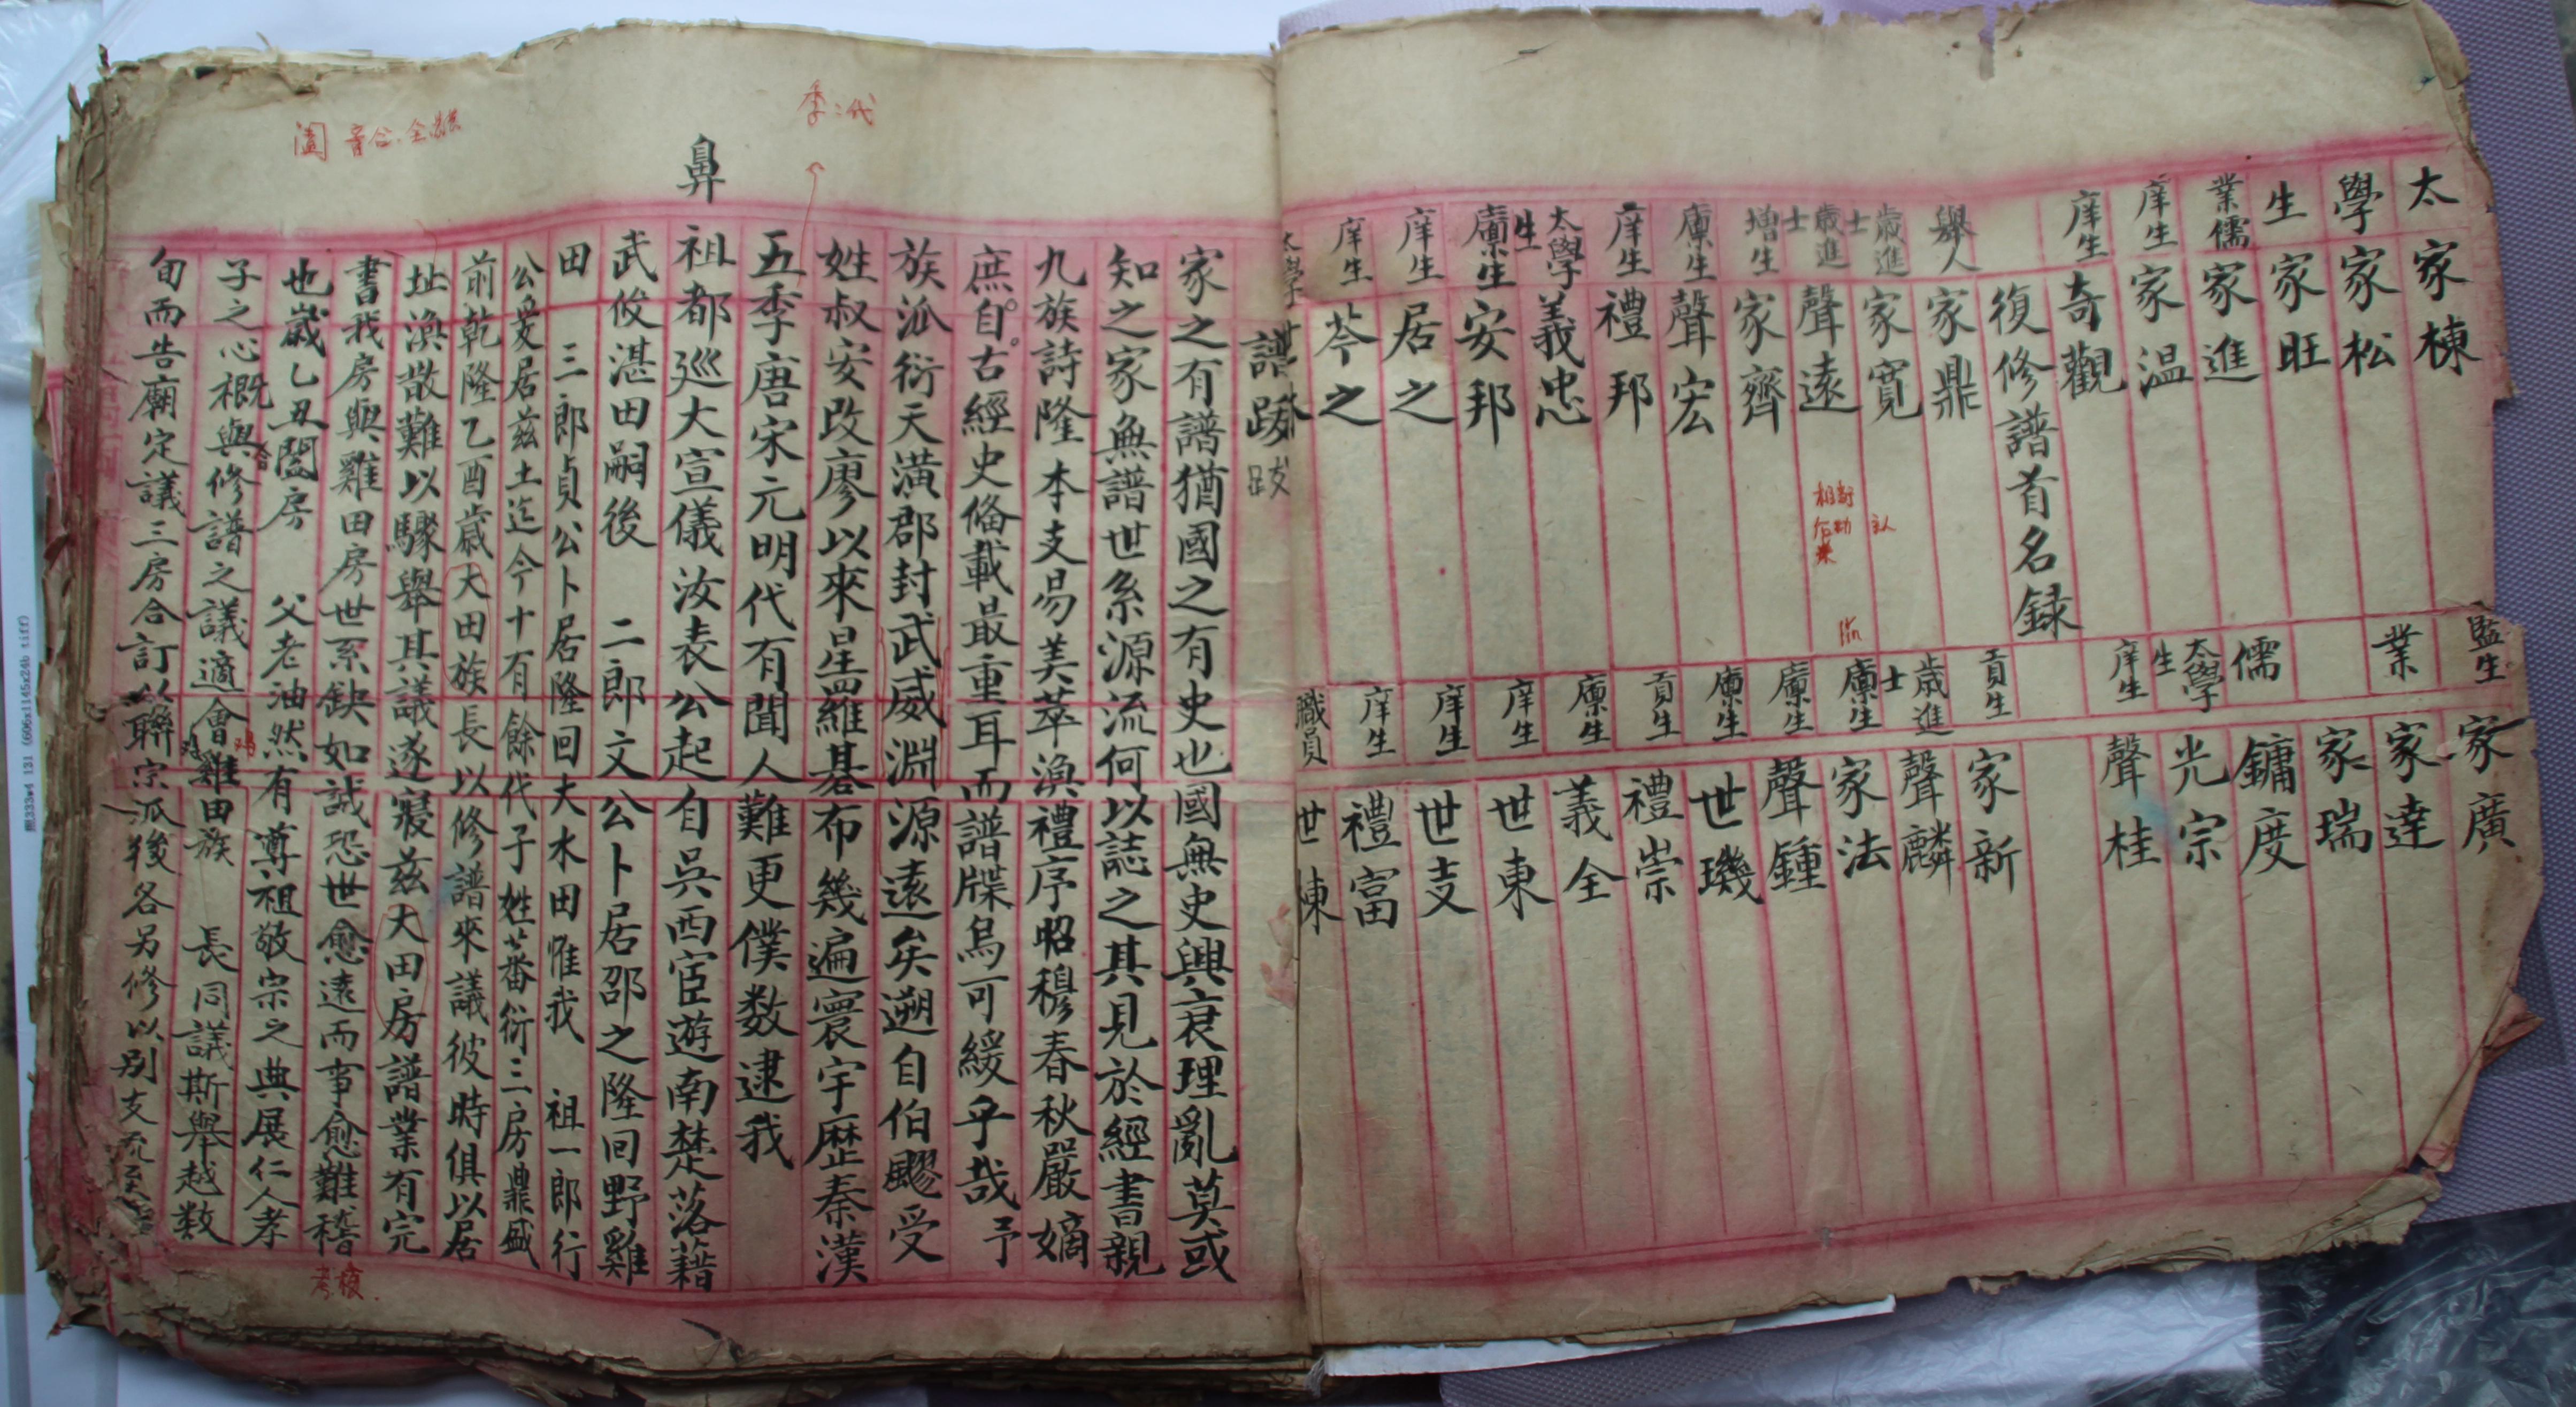 太 家棟 監生 家廣
學 家松 業 家達
生 家旺 家瑞
業儒 家進 儒 鏞度
庠生 家温 太學生 光宗
庠生 奇觀 庠生 聲桂
復修譜首名録
舉人 家鼎 貢生 家新
歲進士 家寛 歲進士 聲麟
歲進士 聲遠 廩生 家法
增生 家齊 廩生 聲鍾
廩生 聲宏 廩生 世璣
庠生 禮邦 貢生 禮崇
太學生 義忠 廩生 義全
廩生 安邦 庠生 世東
庠生 居之 庠生 世支
庠生 芩之 庠生 禮富
太學 世 職員 世棟
譜跋
跋
家之有譜猶國之有史也國無史興衰理亂莫或
知之家無譜世系源流何以誌之其見於經書親
九族詩隆本支易美萃渙禮序昭穆春秋嚴嫡
庶自古經史俻載最重耳而譜牒烏可緩乎哉予
族派衍天潢郡封武威淵源遠矣遡自伯飂受
姓叔安改廖以來星羅碁布幾遍寰宇歷秦漢
五季唐宋元明代有聞人難更僕数逮我
鼻
祖都巡大宣儀汝表公起自吳西宦遊南楚落籍
武俊湛田嗣後 二郎文公卜居邵之隆回野雞
田 三郎貞公卜居隆回大木田惟我 祖一郎行
公爰居兹土迄今十有餘代子姓蕃衍三房鼎盛
前乾隆乙酉歲大田族長以修譜來議彼時俱以居
址渙散難以驟舉其議遂寢兹大田房譜業有完
書我房與雞田房世系缺如誠恐世愈遠而事愈難稽
也歲乙丑闔房 父老油然有尊祖敬宗之典展仁人孝
子之心概與修譜之議適會雞田族 長同議斯舉越数
旬而告廟定議三房合訂以聯宗派後各另修以别支
季代
闔 音合